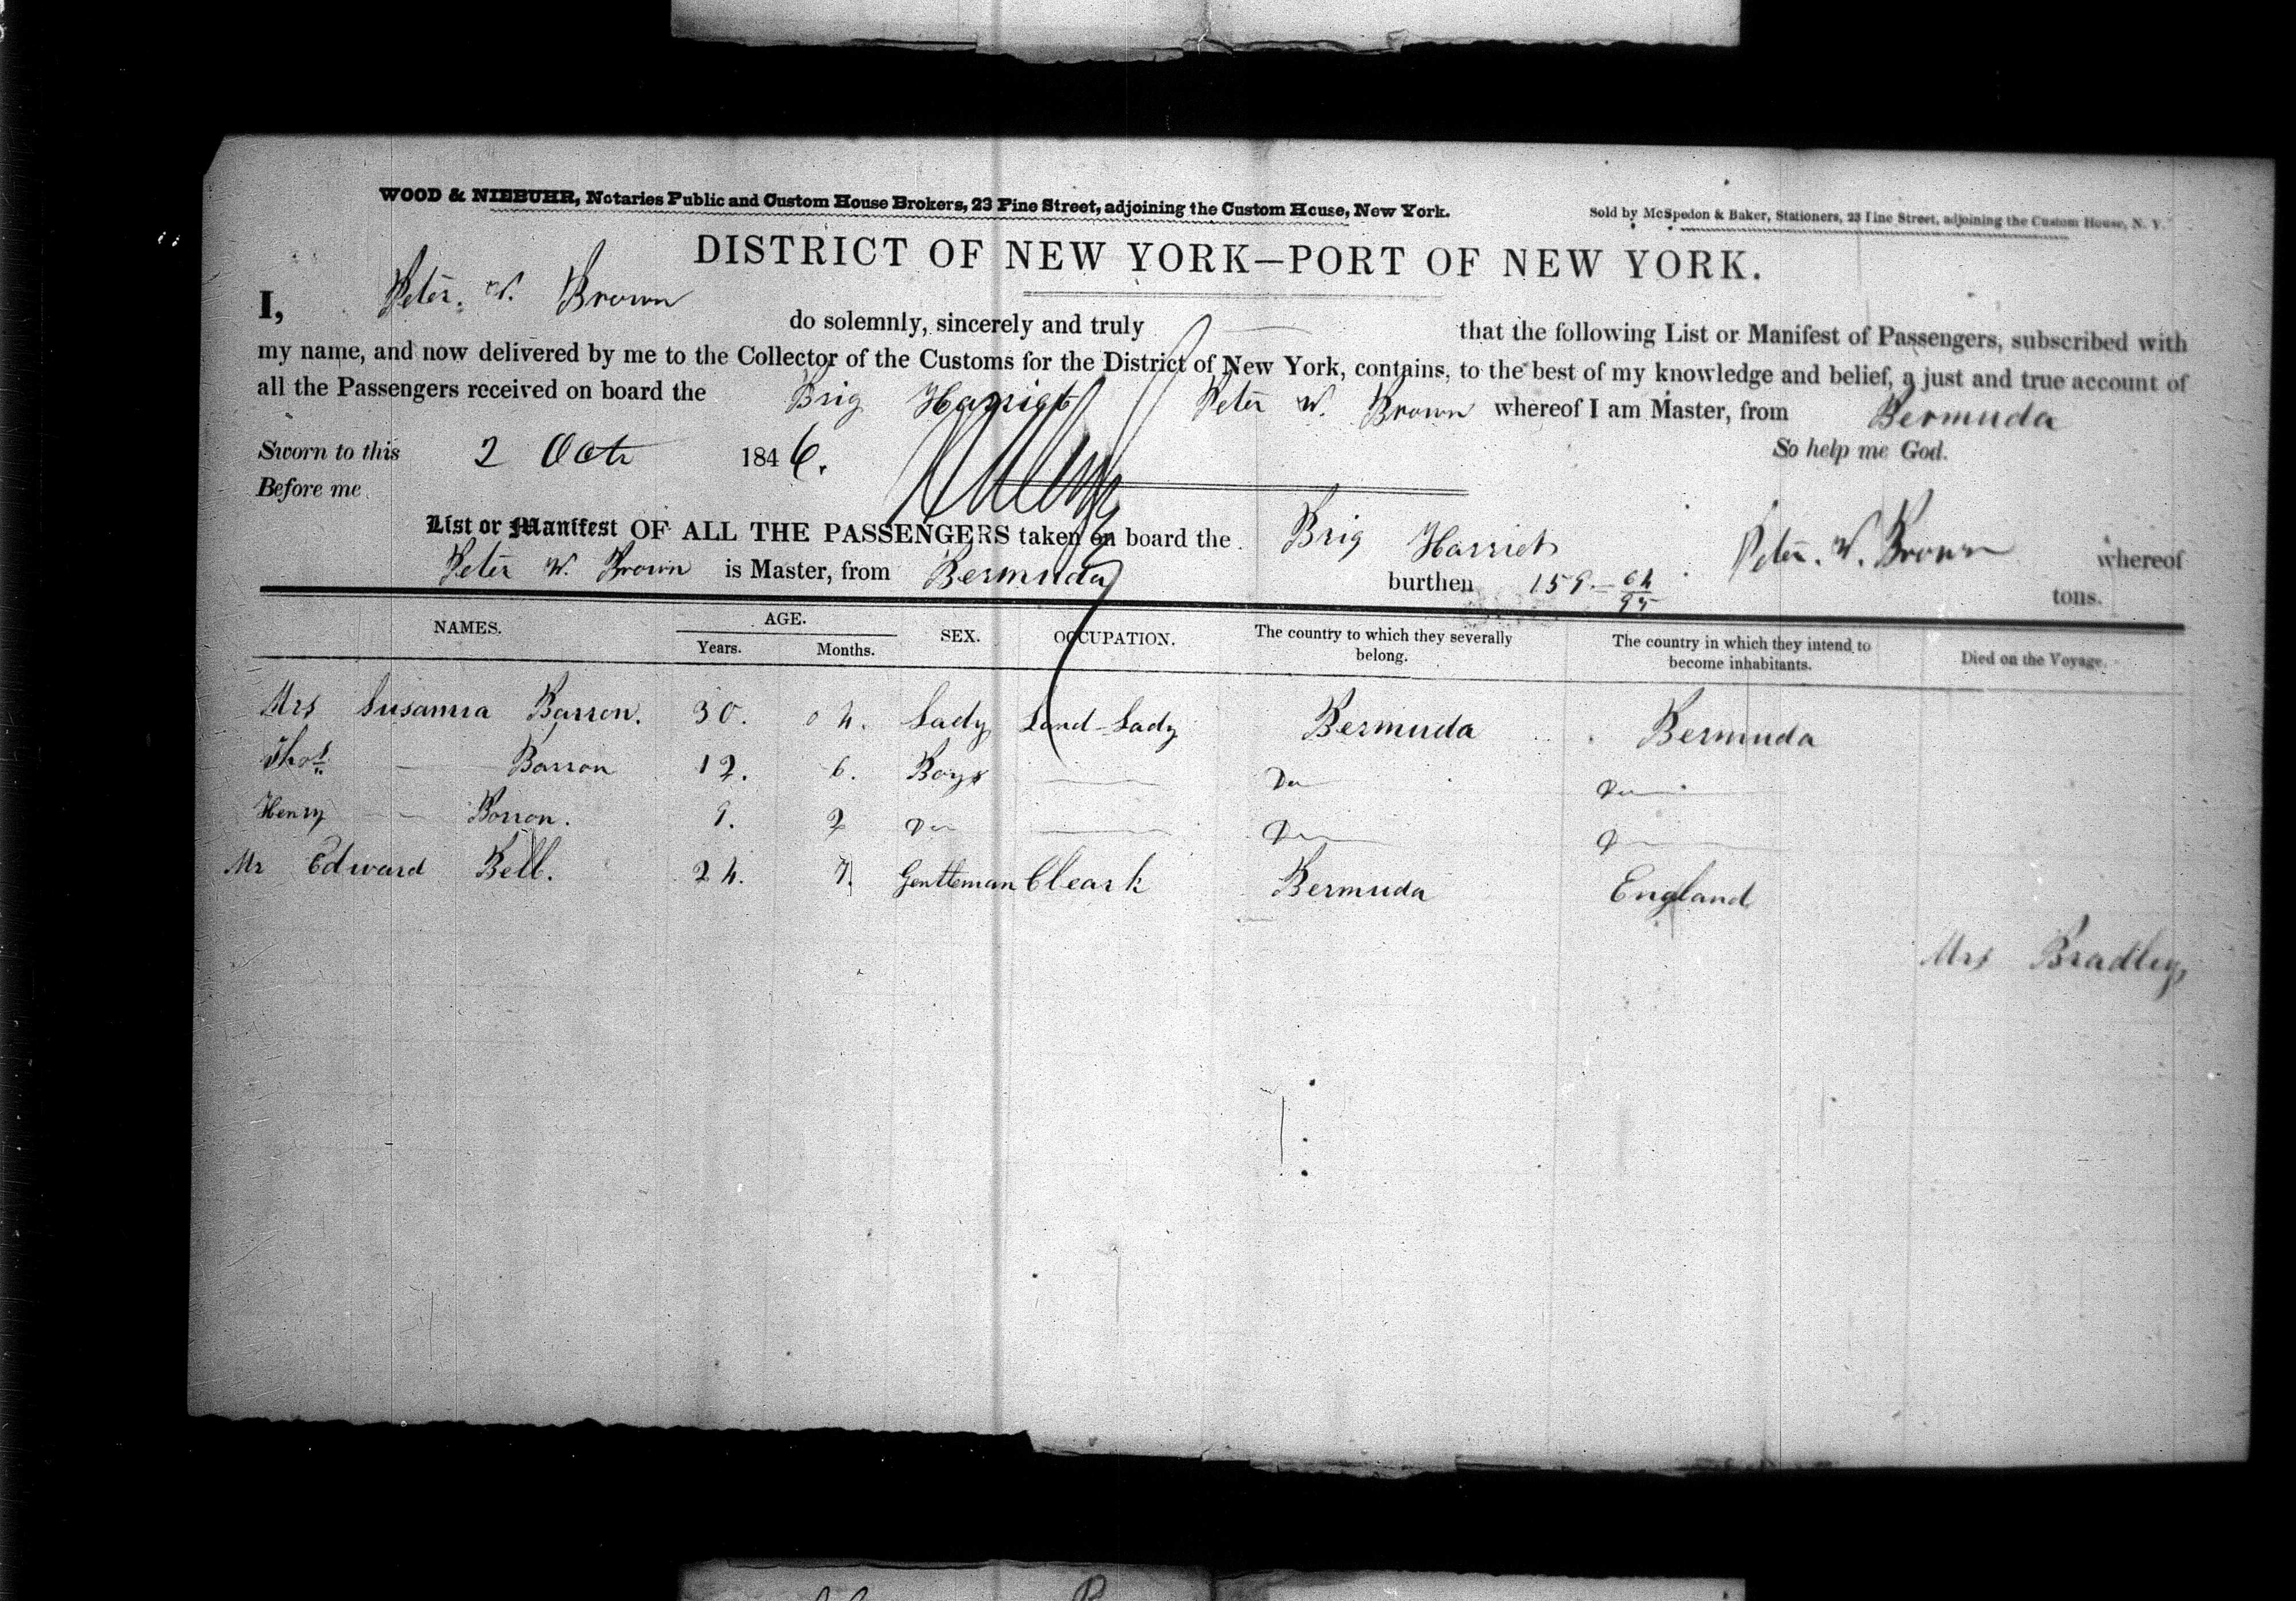 WOOD & NIEBUHR, Notaries Public and Custom House Brokers, 23 Pine Street, adjoining the Custom House, New York.
Sold by McSpedon & Baker, Stationers, 23 Pine Street, adjoining the Custom House, N. Y.
DISTRICT OF NEW YORK—PORT OF NEW YORK.
I, Peter. W. Brown do solemnly, sincerely and truly that the following List or Manifest of Passengers, subscribed with
my name, and now delivered by me to the Collector of the Customs for the District of New York, contains, to the best of my knowledge and belief, a just and true account of
all the Passengers received on board the Brig Harriet Peter W. Brown whereof I am Master, from Bermuda
Sworn to this 2 Oct 1846. So help me God.
Before me
List or Manifest OF ALL THE PASSENGERS taken on board the Brig Harriet Peter. W. Brown whereof
Peter W. Brown is Master, from Bermuda burthen 159 64/95 tons.
NAMES. AGE. Years. Months. SEX. OCCUPATION. The country to which they severally belong. The country in which they intend to become inhabitants. Died on the Voyage.
Mrs Susanna Barron. 30. 04. Lady Land-Lady Bermuda Bermuda
Thos Barron 12. 6. Boys Do Do
Henry Barron. 9. 2 Do Do Do
Mr Edward Bell. 24. 7. Gentleman Cleark Bermuda England
Mrs Bradley